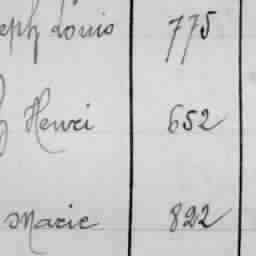 eph Louis 775
Henri 652
Marie 822